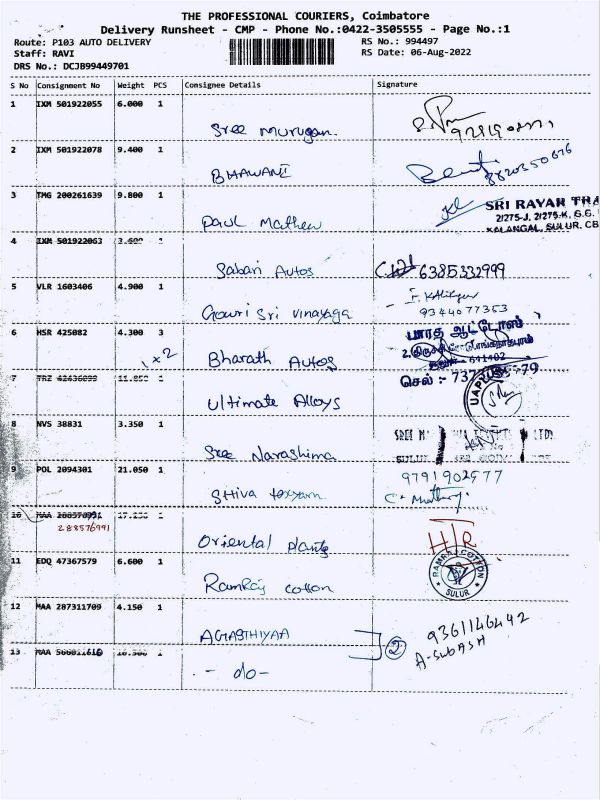 THE PROFESSIONAL COURIERS, Coimbatore
Delivery Runsheet - CMP - Phone No.:0422-3505555 - Page No.:1
Route: P103 AUTO DELIVERY
RS No.: 994497
Staff: RAVI
RS Date: 06-Aug-2022
DRS No.: DCJB99449701
S No Consignment No Weight PCS Consignee Details Signature
1 IXM 501922055 6.000 1
Sree Murugan.
2 IXM 501922078 9.400 1
BHAWANI
8820350676
3 TMG 200261639 9.800 1
SRI RAVAR TRA
2/275-J, 2/275-K, G.G.
KALANGAL, SULUR, CB
Paul Mathew
4 IXM 501922063 3.600 1
Sabari Autos 6385332999
5 VLR 1603406 4.900 1
Gowri Sri Vinayaga
9344077353
6 HSR 425082 4.300 3
பாரத ஆட்டோஸ்
1 x 2
Bharath Autos
641402
7 TRZ 42436099 11.850 1
செல் :-
Ultimate Alloys
8 NVS 38831 3.350 1
Sree Narashima
SULUR
9 POL 2094301 21.050 1
9791902577
Shiva
10 MAA 1
288576991
Oriental Plants
H/R
11 EDQ 47367579 6.600 1
Ramraj Cotton
RAMRAJ COTTON
SULUR
12 MAA 287311709 4.150 1
AGASTHIYAA
2
9361146442
A-SUBASH
13 MAA 1
- do -